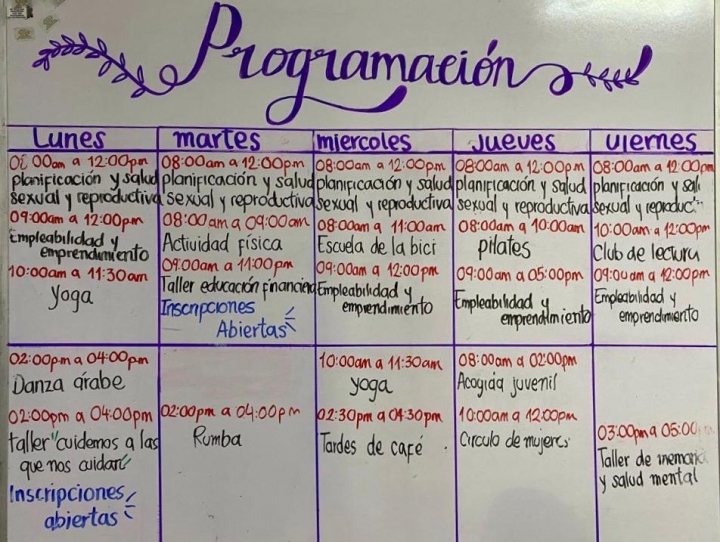 Programación
Lunes
08:00am a 12:00pm
planificación y salud
sexual y reproductiva
09:00am a 12:00pm
Empleabilidad y
emprendimiento
10:00am a 11:30am
yoga
02:00pm a 04:00pm
Danza árabe
02:00pm a 04:00pm
taller "cuidemos a las
que nos cuidan"
Inscripciones
abiertas
martes
08:00am a 12:00pm
planificación y salud
sexual y reproductiva
08:00am a 09:00am
Actividad física
09:00am a 11:00pm
Taller educación financiera
Inscripciones
Abiertas
02:00pm a 04:00pm
Rumba
miercoles
08:00am a 12:00pm
planificación y salud
sexual y reproductiva
08:00am a 11:00am
Escuela de la bici
09:00am a 12:00pm
Empleabilidad y
emprendimiento
10:00am a 11:30am
yoga
02:30pm a 04:30pm
Tardes de café
Jueves
08:00am a 12:00pm
planificación y salud
sexual y reproductiva
08:00am a 10:00am
pilates
09:00am a 05:00pm
Empleabilidad y
emprendimiento
08:00am a 02:00pm
Acogida juvenil
10:00am a 12:00pm
Circulo de mujeres
viernes
08:00am a 12:00pm
planificación y
sexual y
10:00am a 12:00pm
Club de lectura
09:00am a 12:00pm
Empleabilidad y
emprendimiento
03:00pm a 05:00
Taller de memoria
y salud mental